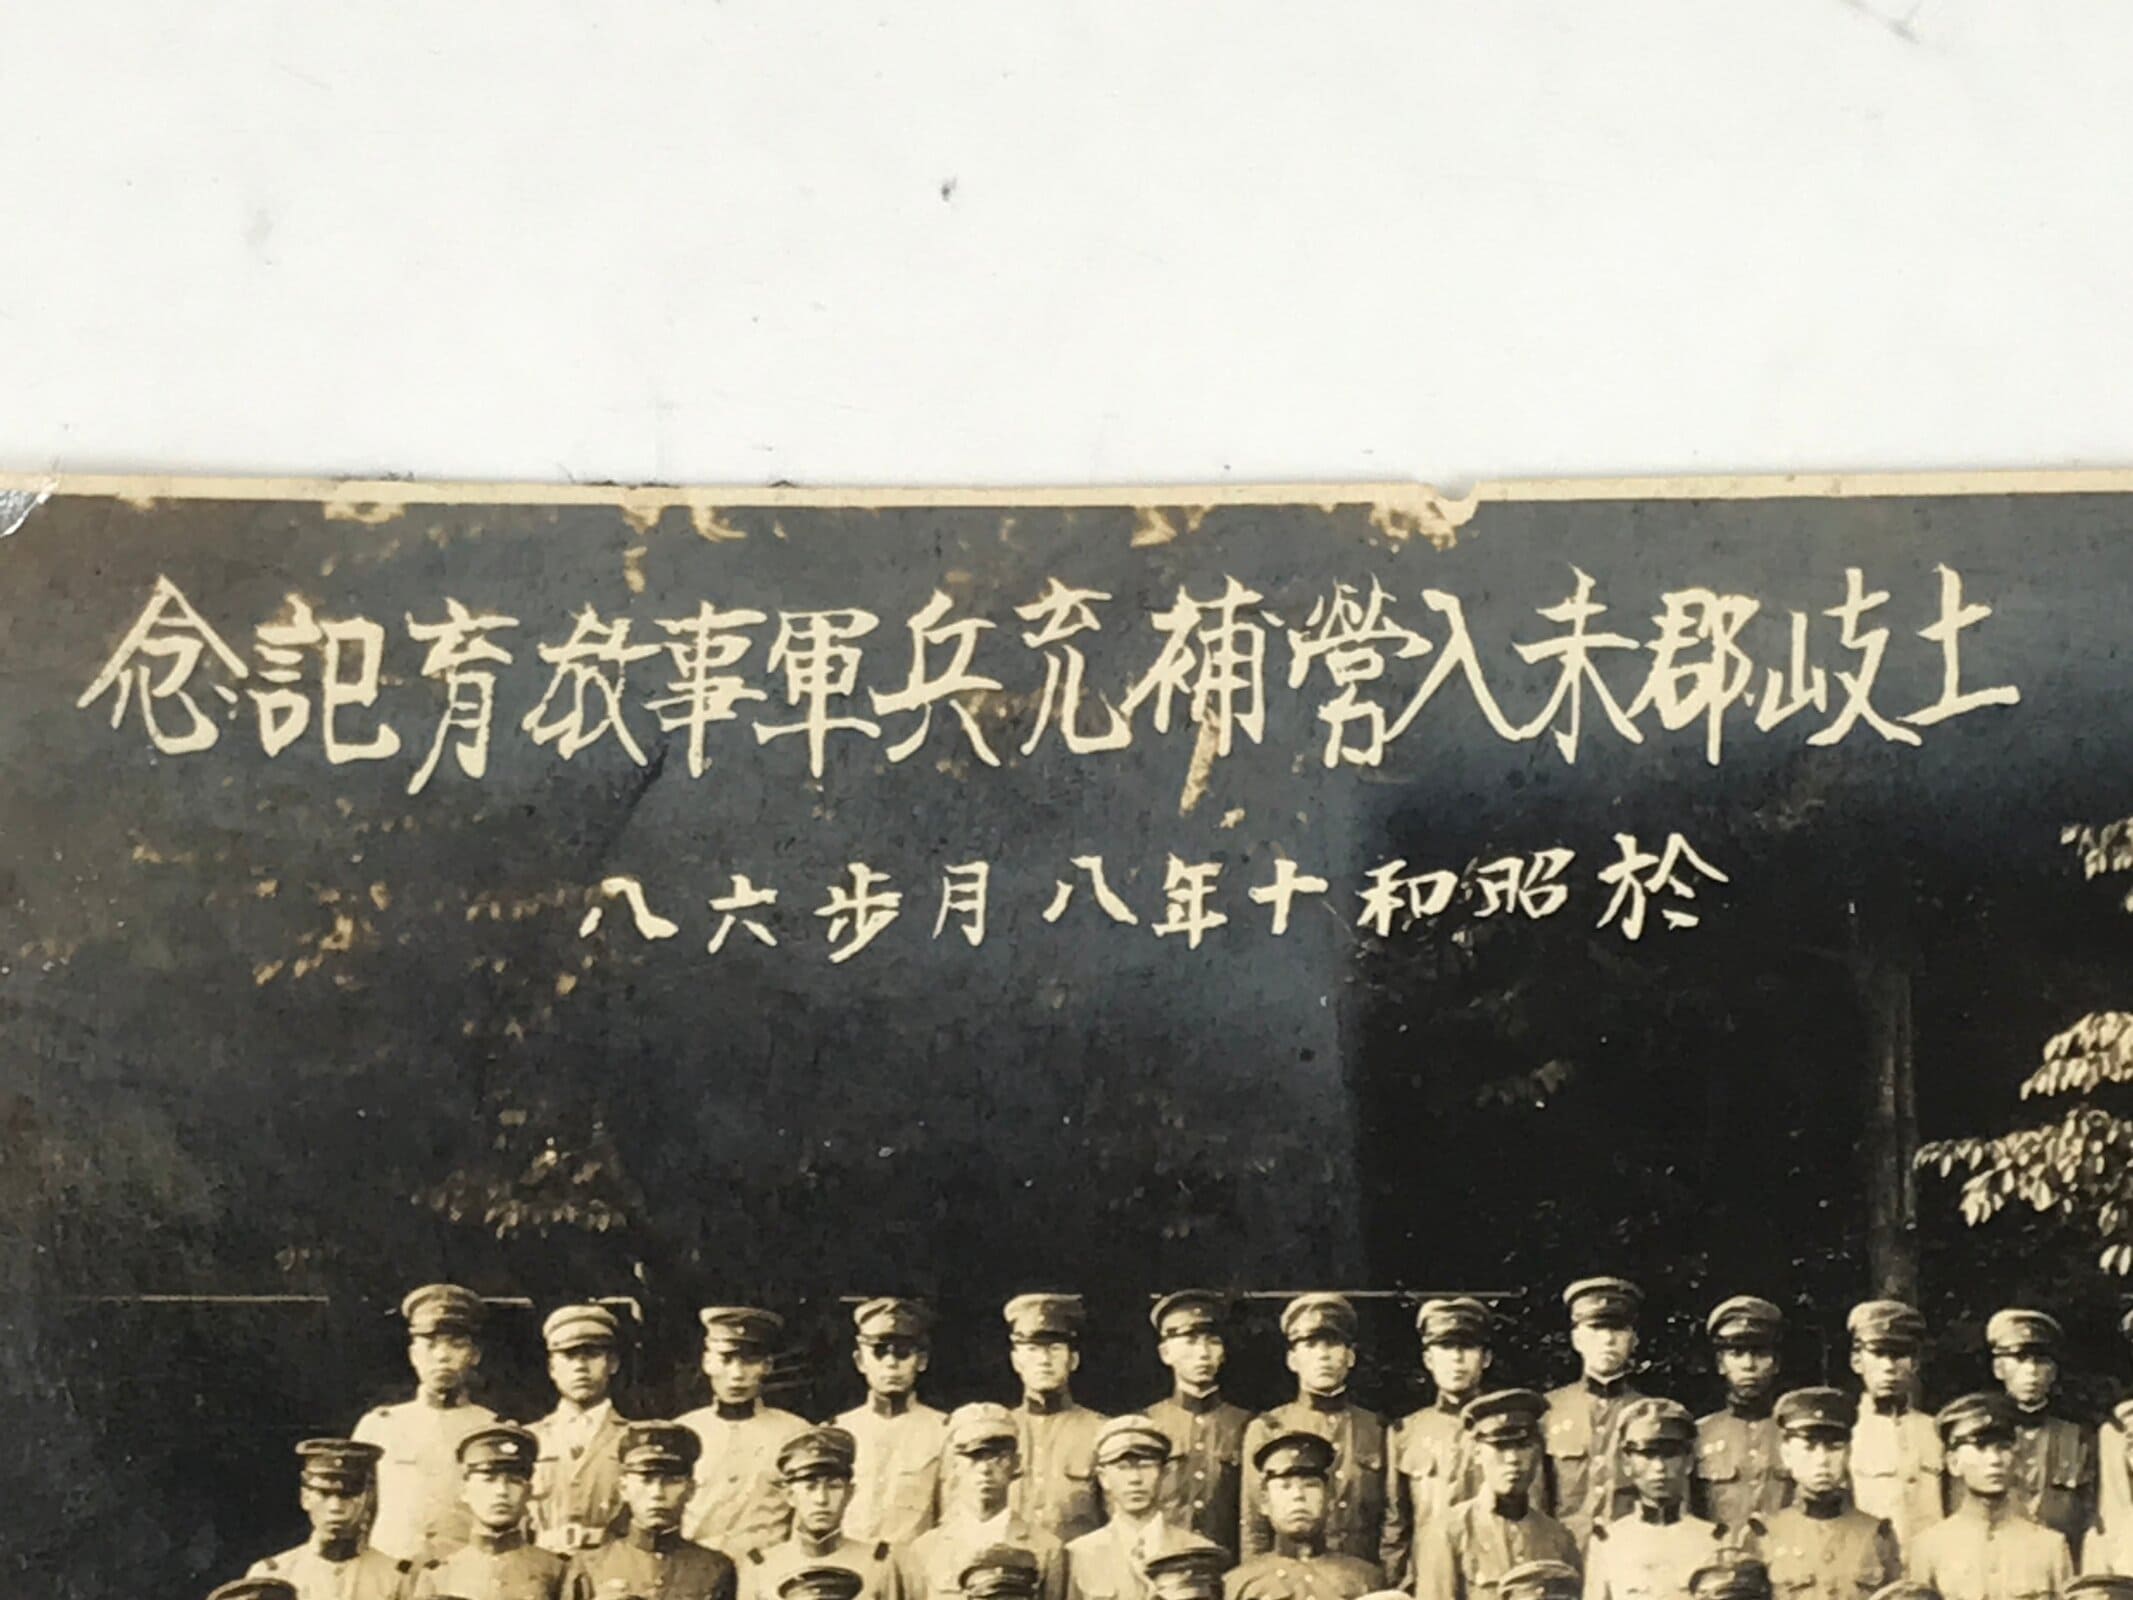 土岐郡未入営補充兵軍事教育記念
於昭和十年八月歩六八